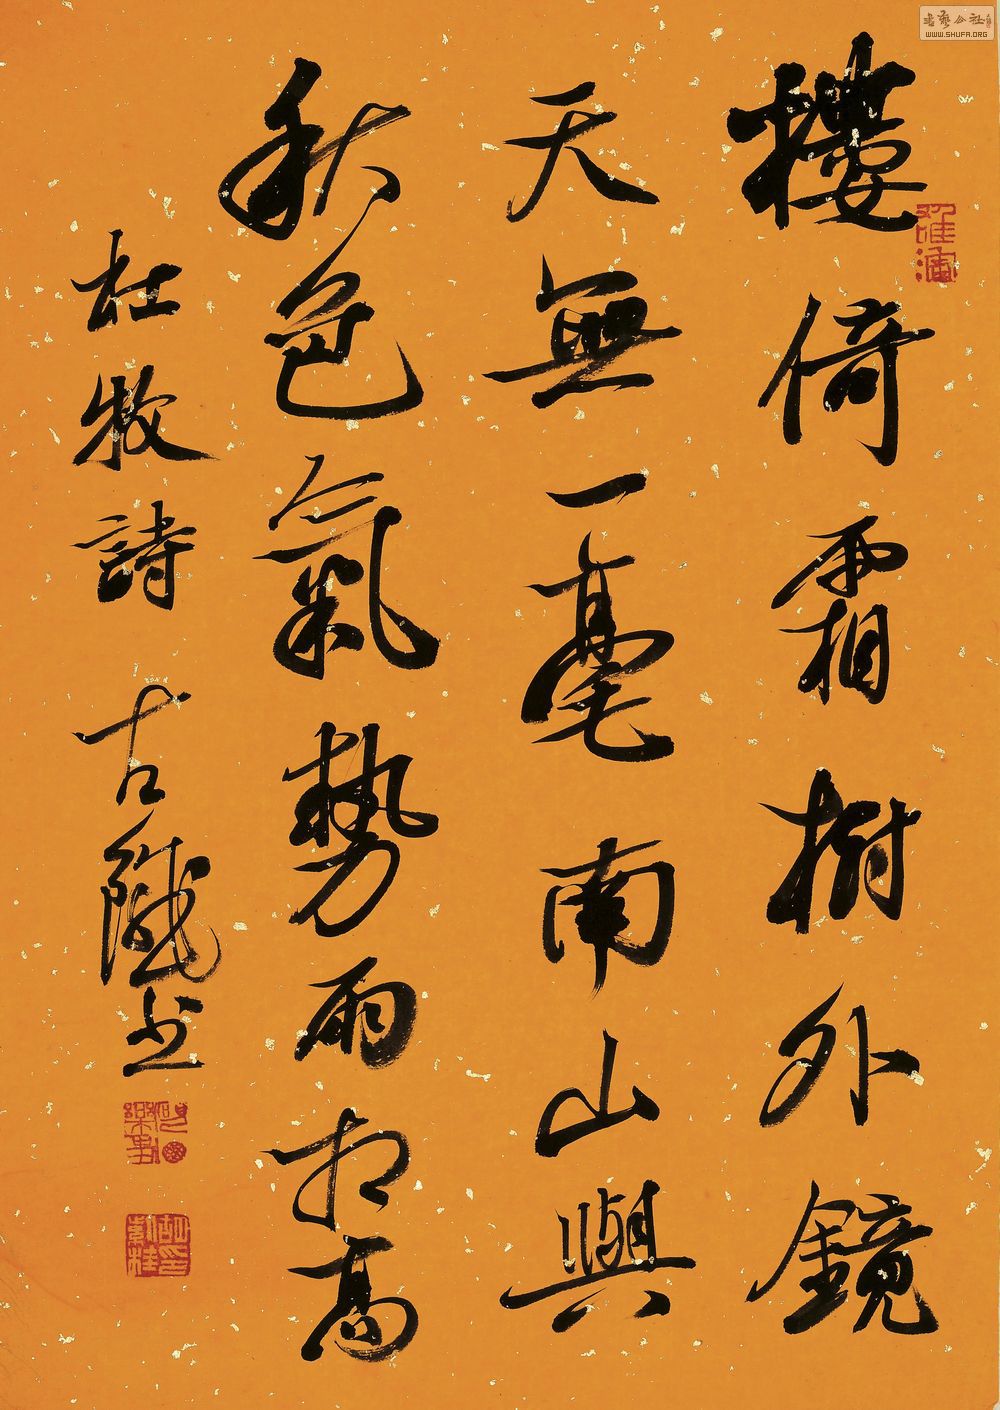 樓倚霜樹外鏡
天無一毫南山與
秋色氣勢兩相高
杜牧詩 古隴書
書藝公社
WWW.SHUFA.ORG